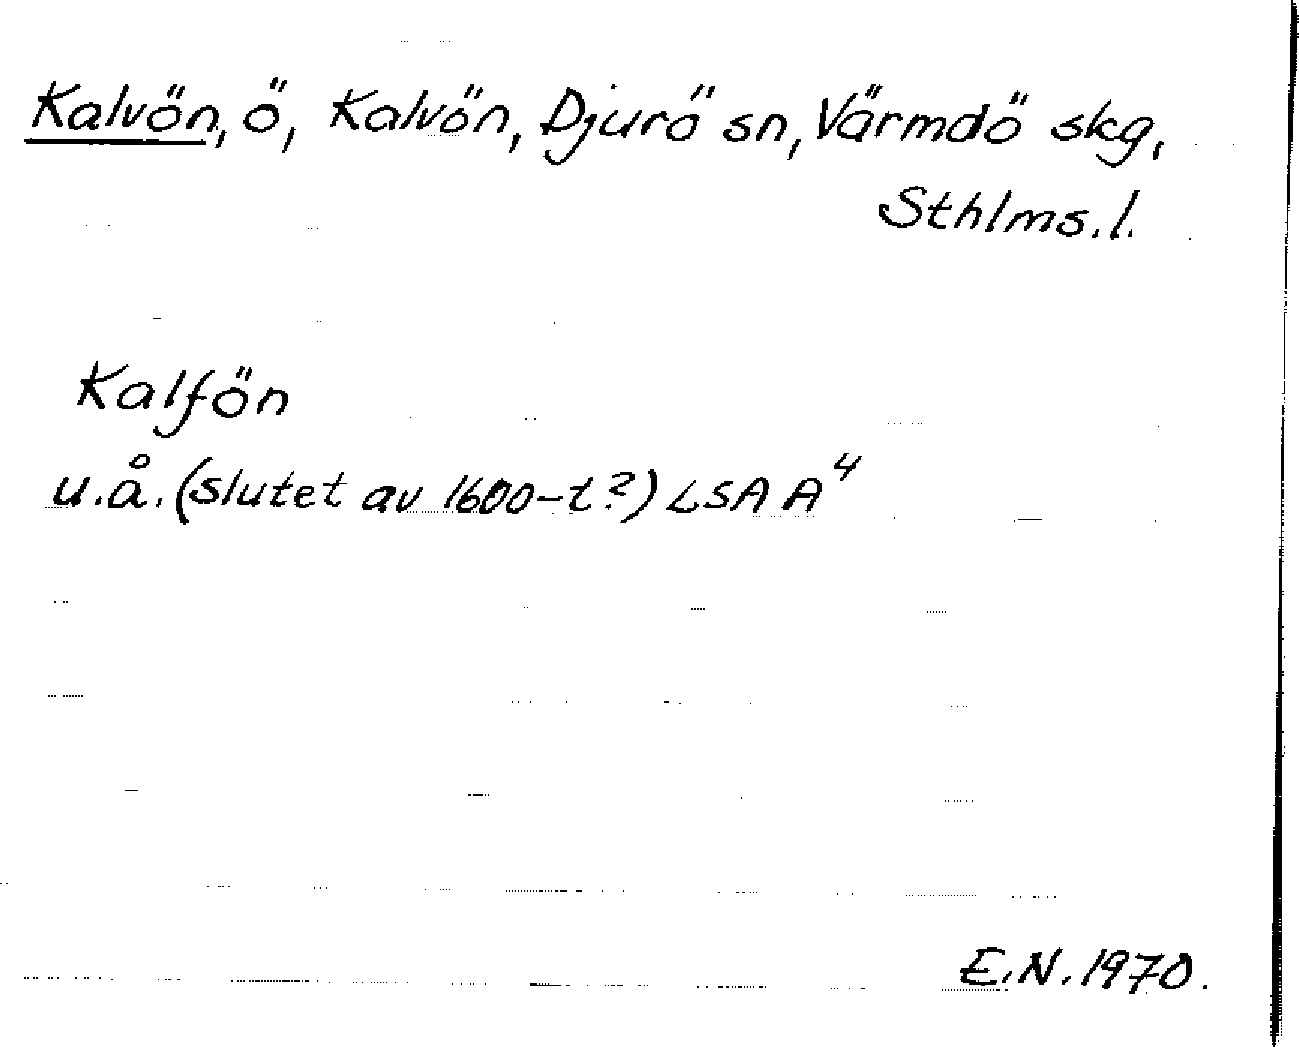 Kalvön, ö, Kalvön, Djurö sn, Värmdö skg,
Sthlms. l.
Kalfön
u.å. (slutet av 1600-t?) LSA A⁴
E.N. 1970.